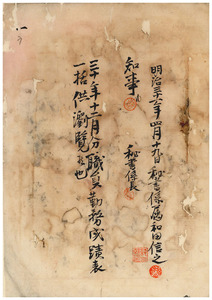 明治三十一年四月十九日 秘書係属和田信之
知事
秘書係長
三十年十二月分職員勤務成蹟表
一括供瀏覽候也